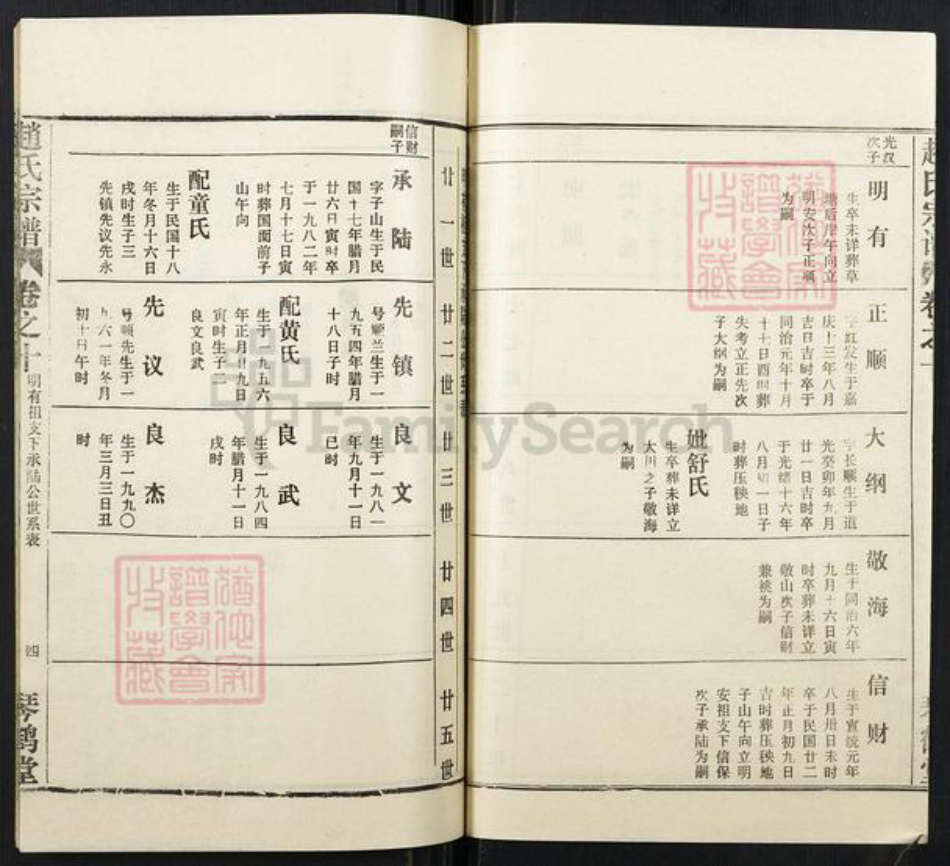 光汉
次子
明有
生卒未详葬草
塘后岸午向立
明安次子正顺
为嗣
正顺
字红发生于嘉
庆十三年八月
吉日吉时卒于
同治元年十月
十七日酉时葬
失考立正先次
子大纲为嗣
大纲
字长顺生于道
光癸卯年九月
廿一日吉时卒
于光绪十六年
八月初一日子
时葬压秧地
妣舒氏
生卒葬未详立
大川之子敬海
为嗣
敬海
生于同治六年
九月十六日寅
时卒葬未详立
敬山次子信财
兼祧为嗣
信财
生于宣统元年
八月卅日未时
卒于民国廿二
年正月初九日
吉时葬压秧地
子山午向立明
安祖支下信保
次子承陆为嗣
廿一世
廿二世
廿三世
廿四世
廿五世
信财
嗣子
承陆
字子山生于民
国十七年腊月
廿六日寅时卒
于一九八二年
七月十七日寅
时葬国面前子
山午向
配童氏
生于民国十八
年冬月十六日
戌时生子三
先镇先议先永
先镇
号顺兰生于一
九五四年腊月
十八日子时
配黄氏
生于一九五六
年正月廿九日
寅时生子二
良文良武
先议
号顺先生于一
九六一年冬月
初十日午时
良文
生于一九八一
年九月十一日
巳时
良武
生于一九八四
年腊月十一日
戌时
良杰
生于一九九〇
年三月三日丑
时
趙氏宗譜
卷之十
明有祖支下承陆公世系表
四
琴鹤堂
FamilySearch